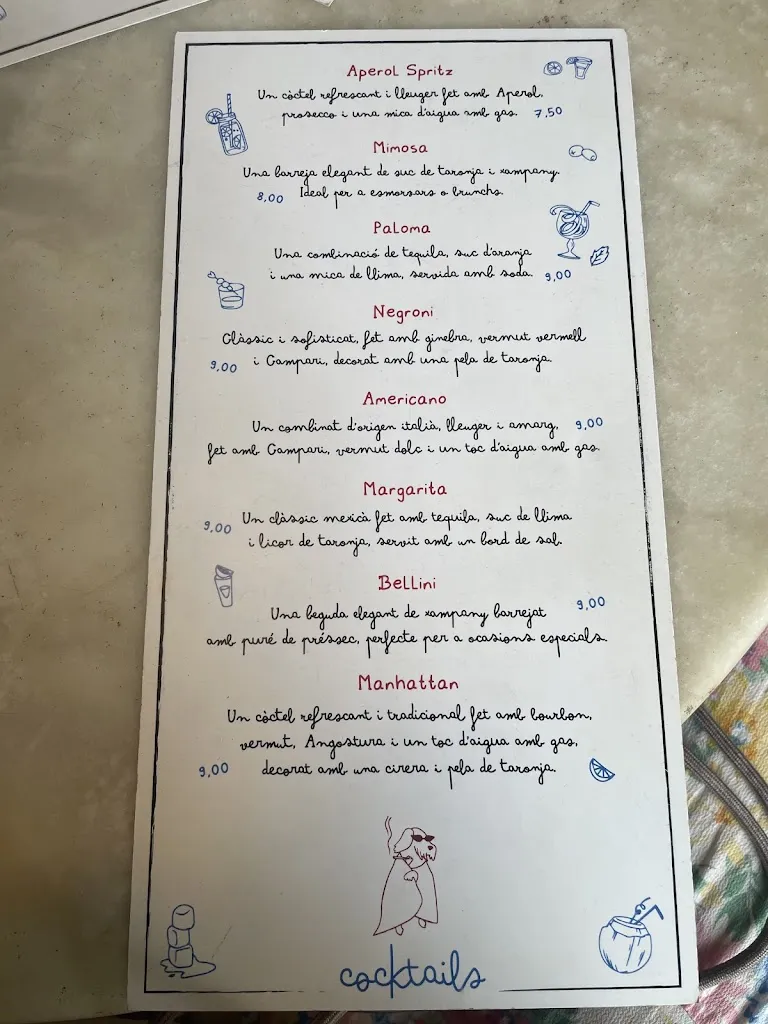 Aperol Spritz
Un còctel refrescant i lleuger fet amb Aperol,
prosecco i una mica d'aigua amb gas. 7,50
Mimosa
Una barreja elegant de suc de taronja i xampany.
8,00 Ideal per a esmorsars o brunchs.
Paloma
Una combinació de tequila, suc d'aranja
i una mica de llima, servida amb soda. 9,00
Negroni
Clàssic i sofisticat, fet amb ginebra, vermut vermell
9,00 i Campari, decorat amb una pela de taronja.
Americano
Un combinat d'origen italià, lleuger i amarg, 9,00
fet amb Campari, vermut dolç i un toc d'aigua amb gas.
Margarita
9,00 Un clàssic mexicà fet amb tequila, suc de llima
i licor de taronja, servit amb un bord de sal.
Bellini
Una beguda elegant de xampany barrejat 9,00
amb puré de préssec, perfecte per a ocasions especials.
Manhattan
Un còctel refrescant i tradicional fet amb bourbon,
vermut, Angostura i un toc d'aigua amb gas,
9,00 decorat amb una cirera i pela de taronja.
cocktails